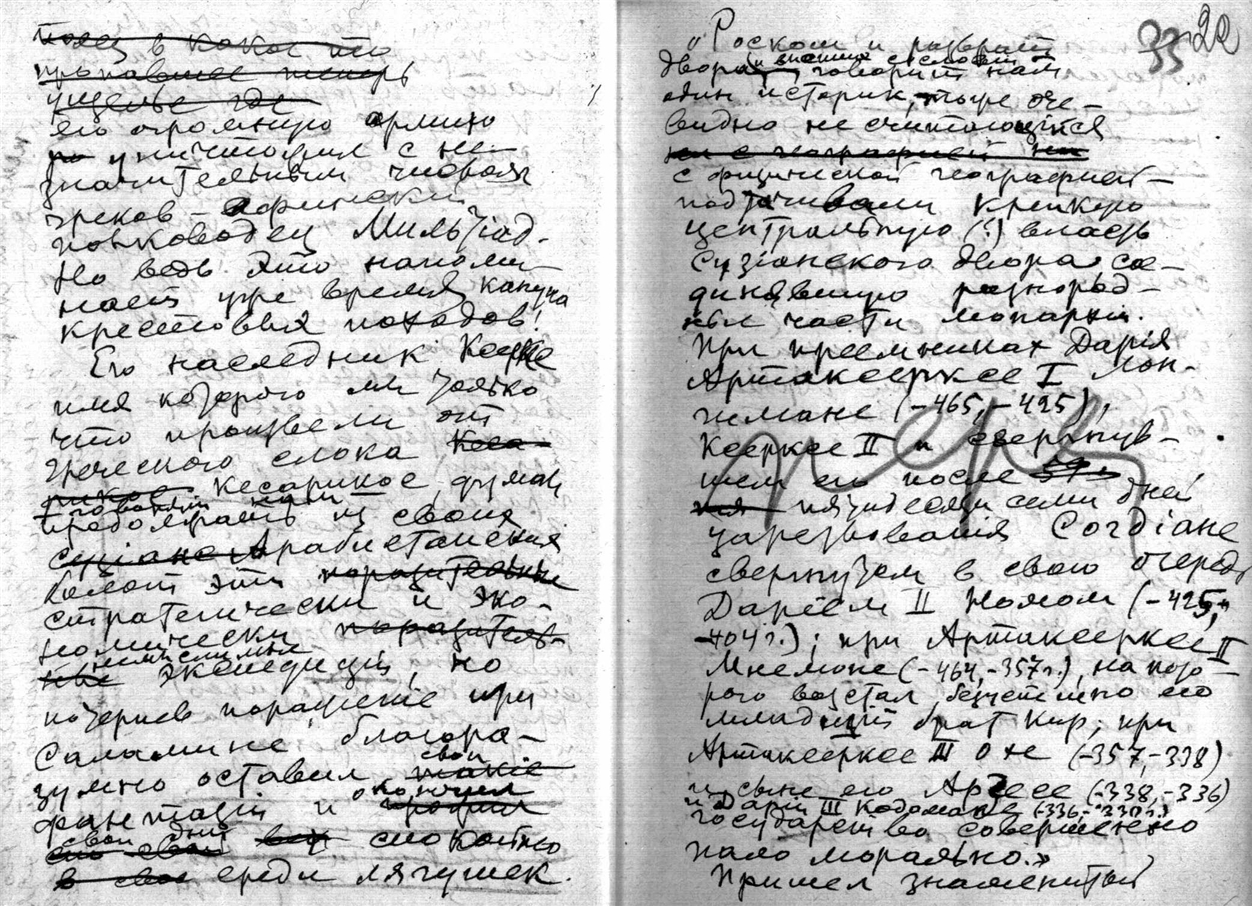 поля в какое то
пропавшее теперь
ущелье где
его огромную армию
уничтожил с не-
значительным числом
греков – афинский
полководец Мильтіад.
Но ведь это напоми-
наетъ уже время кануна
крестовых походов!
Его наследник Ксеркс
имя которого мы только
что произвели от
греческого слова
Кесарикос, думал
говорят нам
продолжать из своих
Арабистанских
болот эти поразительные
стратегически и эко-
номически
немыслимые
экспедиціи, но
потерпев пораженіе при
Саламине, благора-
зумно оставил свои такіе
фантазіи и окончил
свои дни спокойно
в свое среди лягушек.
33 20
„Роскош и разврат
двора и высших сословій говорит нам
один историк, тоже оче-
видно не считающійся
ни с географией ни
с физической географией –
подтачивали крепкую
центральную (?) власть
Сузіанского двора сое-
динявшую разнород-
ные части монархіи.
При преемниках Дарія
Артаксерксе I Лон-
гимане (–465, –425),
Ксерксе II и свергнув-
шем его после
пятидесяти семи дней
царствованія Согдіане
свергнутом в свою очередь
Даріем II Нотом (–425,
–404 г.); при Артаксерксе II
Мнемоне (–464, –357 г.), на кото-
рого возстал безуспешно его
младшій брат Кир; при
Артаксерксе III Охе (–357, –338)
и сыне его Арсесе (–338, –336)
и Дарии III Кодомане (–336, –330 г.)
государство совершенно
пало морально.»
Пришел знаменитый